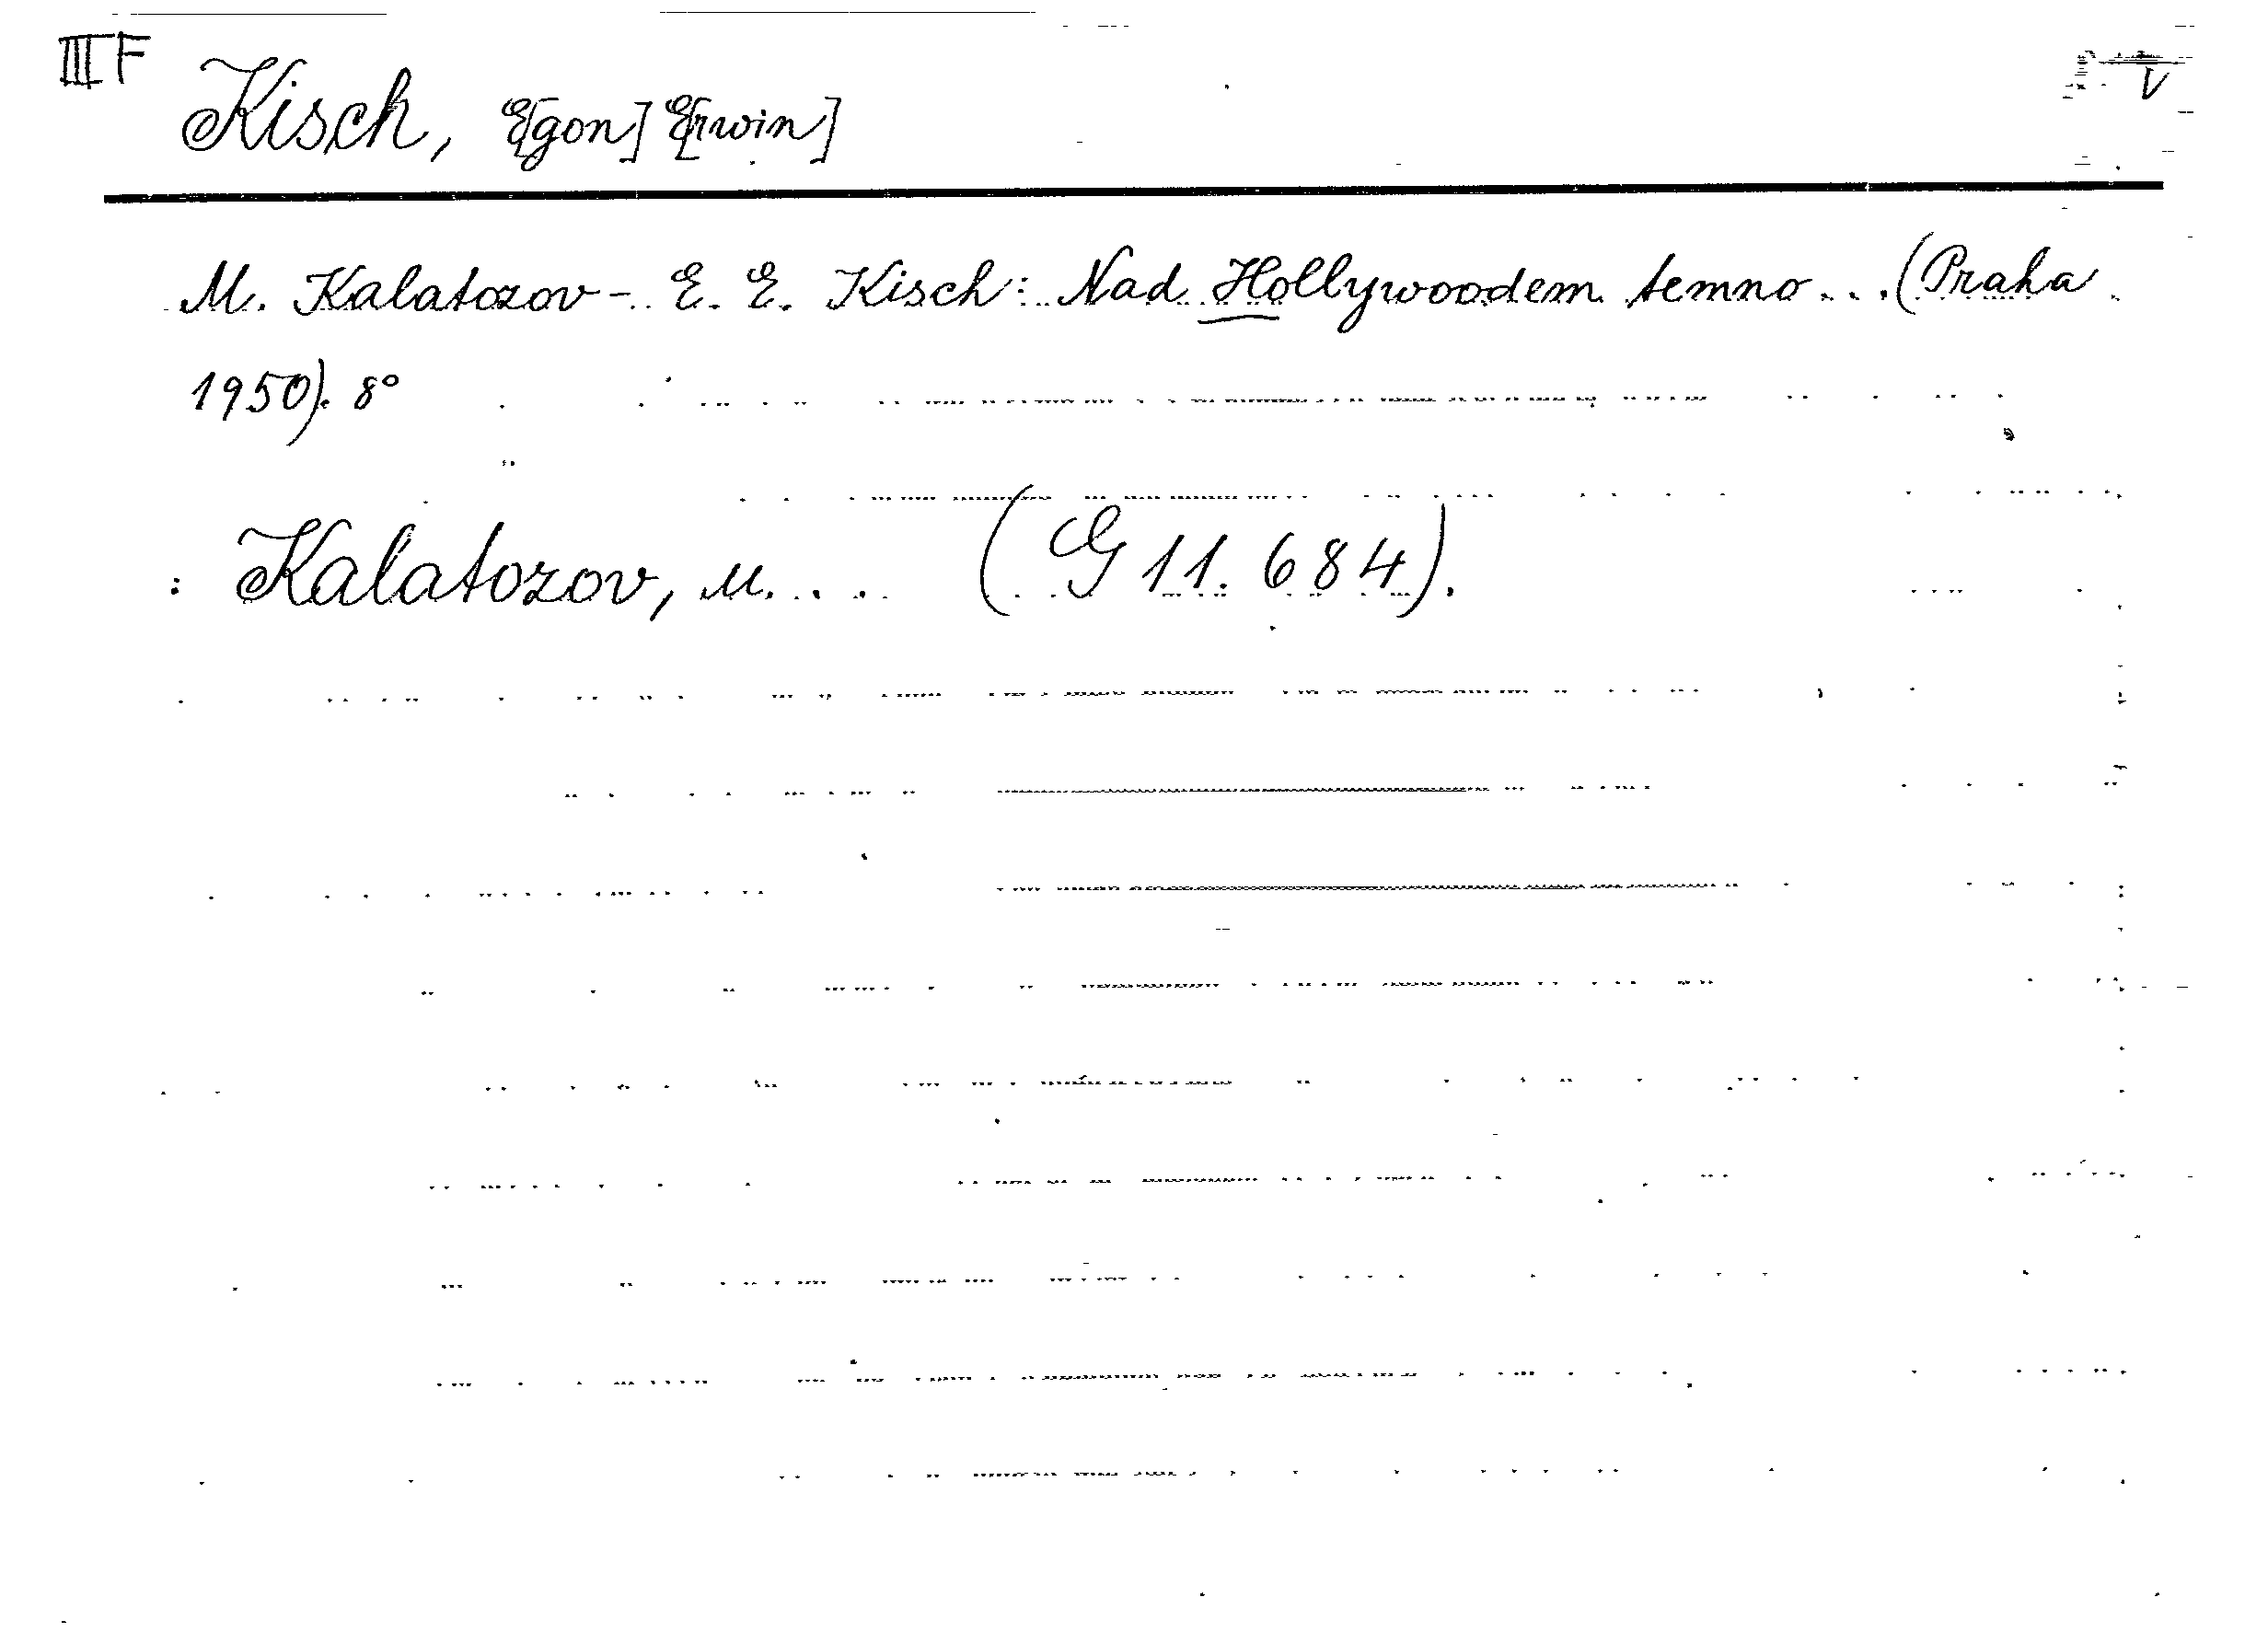 III F
Kisch, E[gon] E[rwin]
V
M. Kalatozov - E. E. Kisch: Nad Hollywoodem temno... (Praha
1950). 8°
: Kalatozov, M. ... (G 11.684).